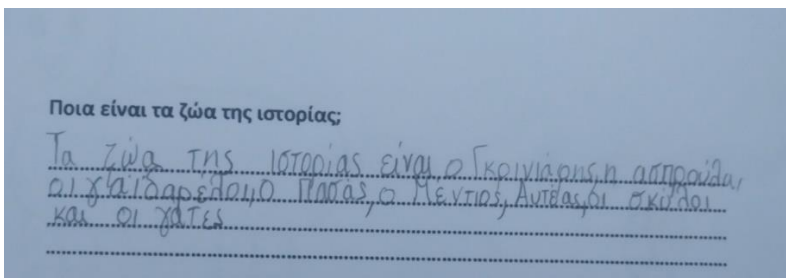 Ποια είναι τα ζώα της ιστορίας;
Τα ζώα της ιστορίας είναι ο Γκρινιάρης, η ασπρούλα,
οι γαϊδαρέλοι, ο Πασάς, ο Μέντιος, Λυτέας, οι σκύλοι
και οι γάτες